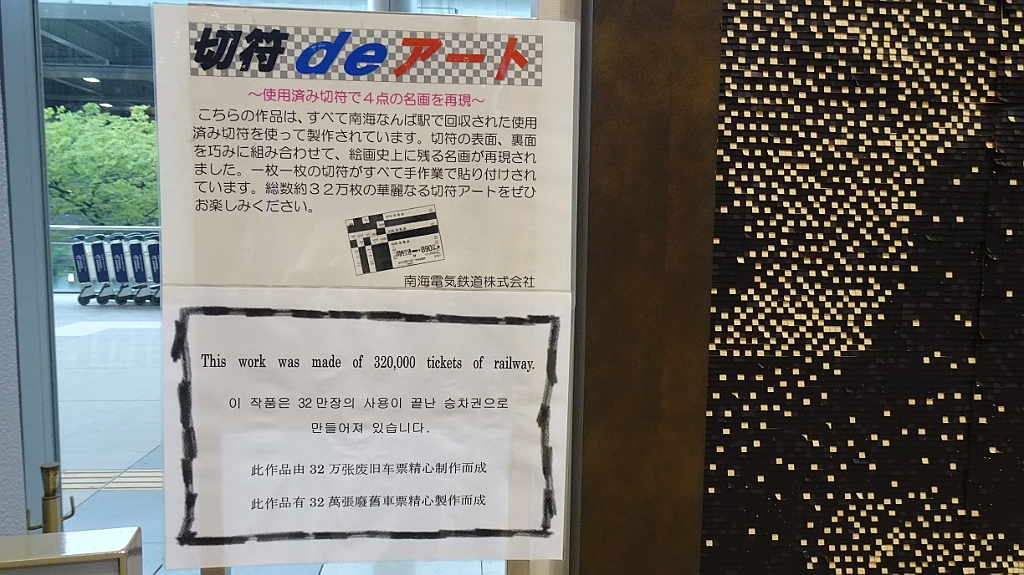 切符deアート
～使用済み切符で4点の名画を再現～
こちらの作品は、すべて南海なんば駅で回収された使用
済み切符を使って製作されています。切符の表面、裏面
を巧みに組み合わせて、絵画史上に残る名画が再現され
ました。一枚一枚の切符がすべて手作業で貼り付けされ
ています。総数約32万枚の華麗なる切符アートをぜひ
お楽しみください。
南海電気鉄道株式会社
This work was made of 320,000 tickets of railway.
이 작품은 32만장의 사용이 끝난 승차권으로
만들어져 있습니다.
此作品由 32 万张废旧车票精心制作而成
此作品有 32 萬張廢舊車票精心製作而成